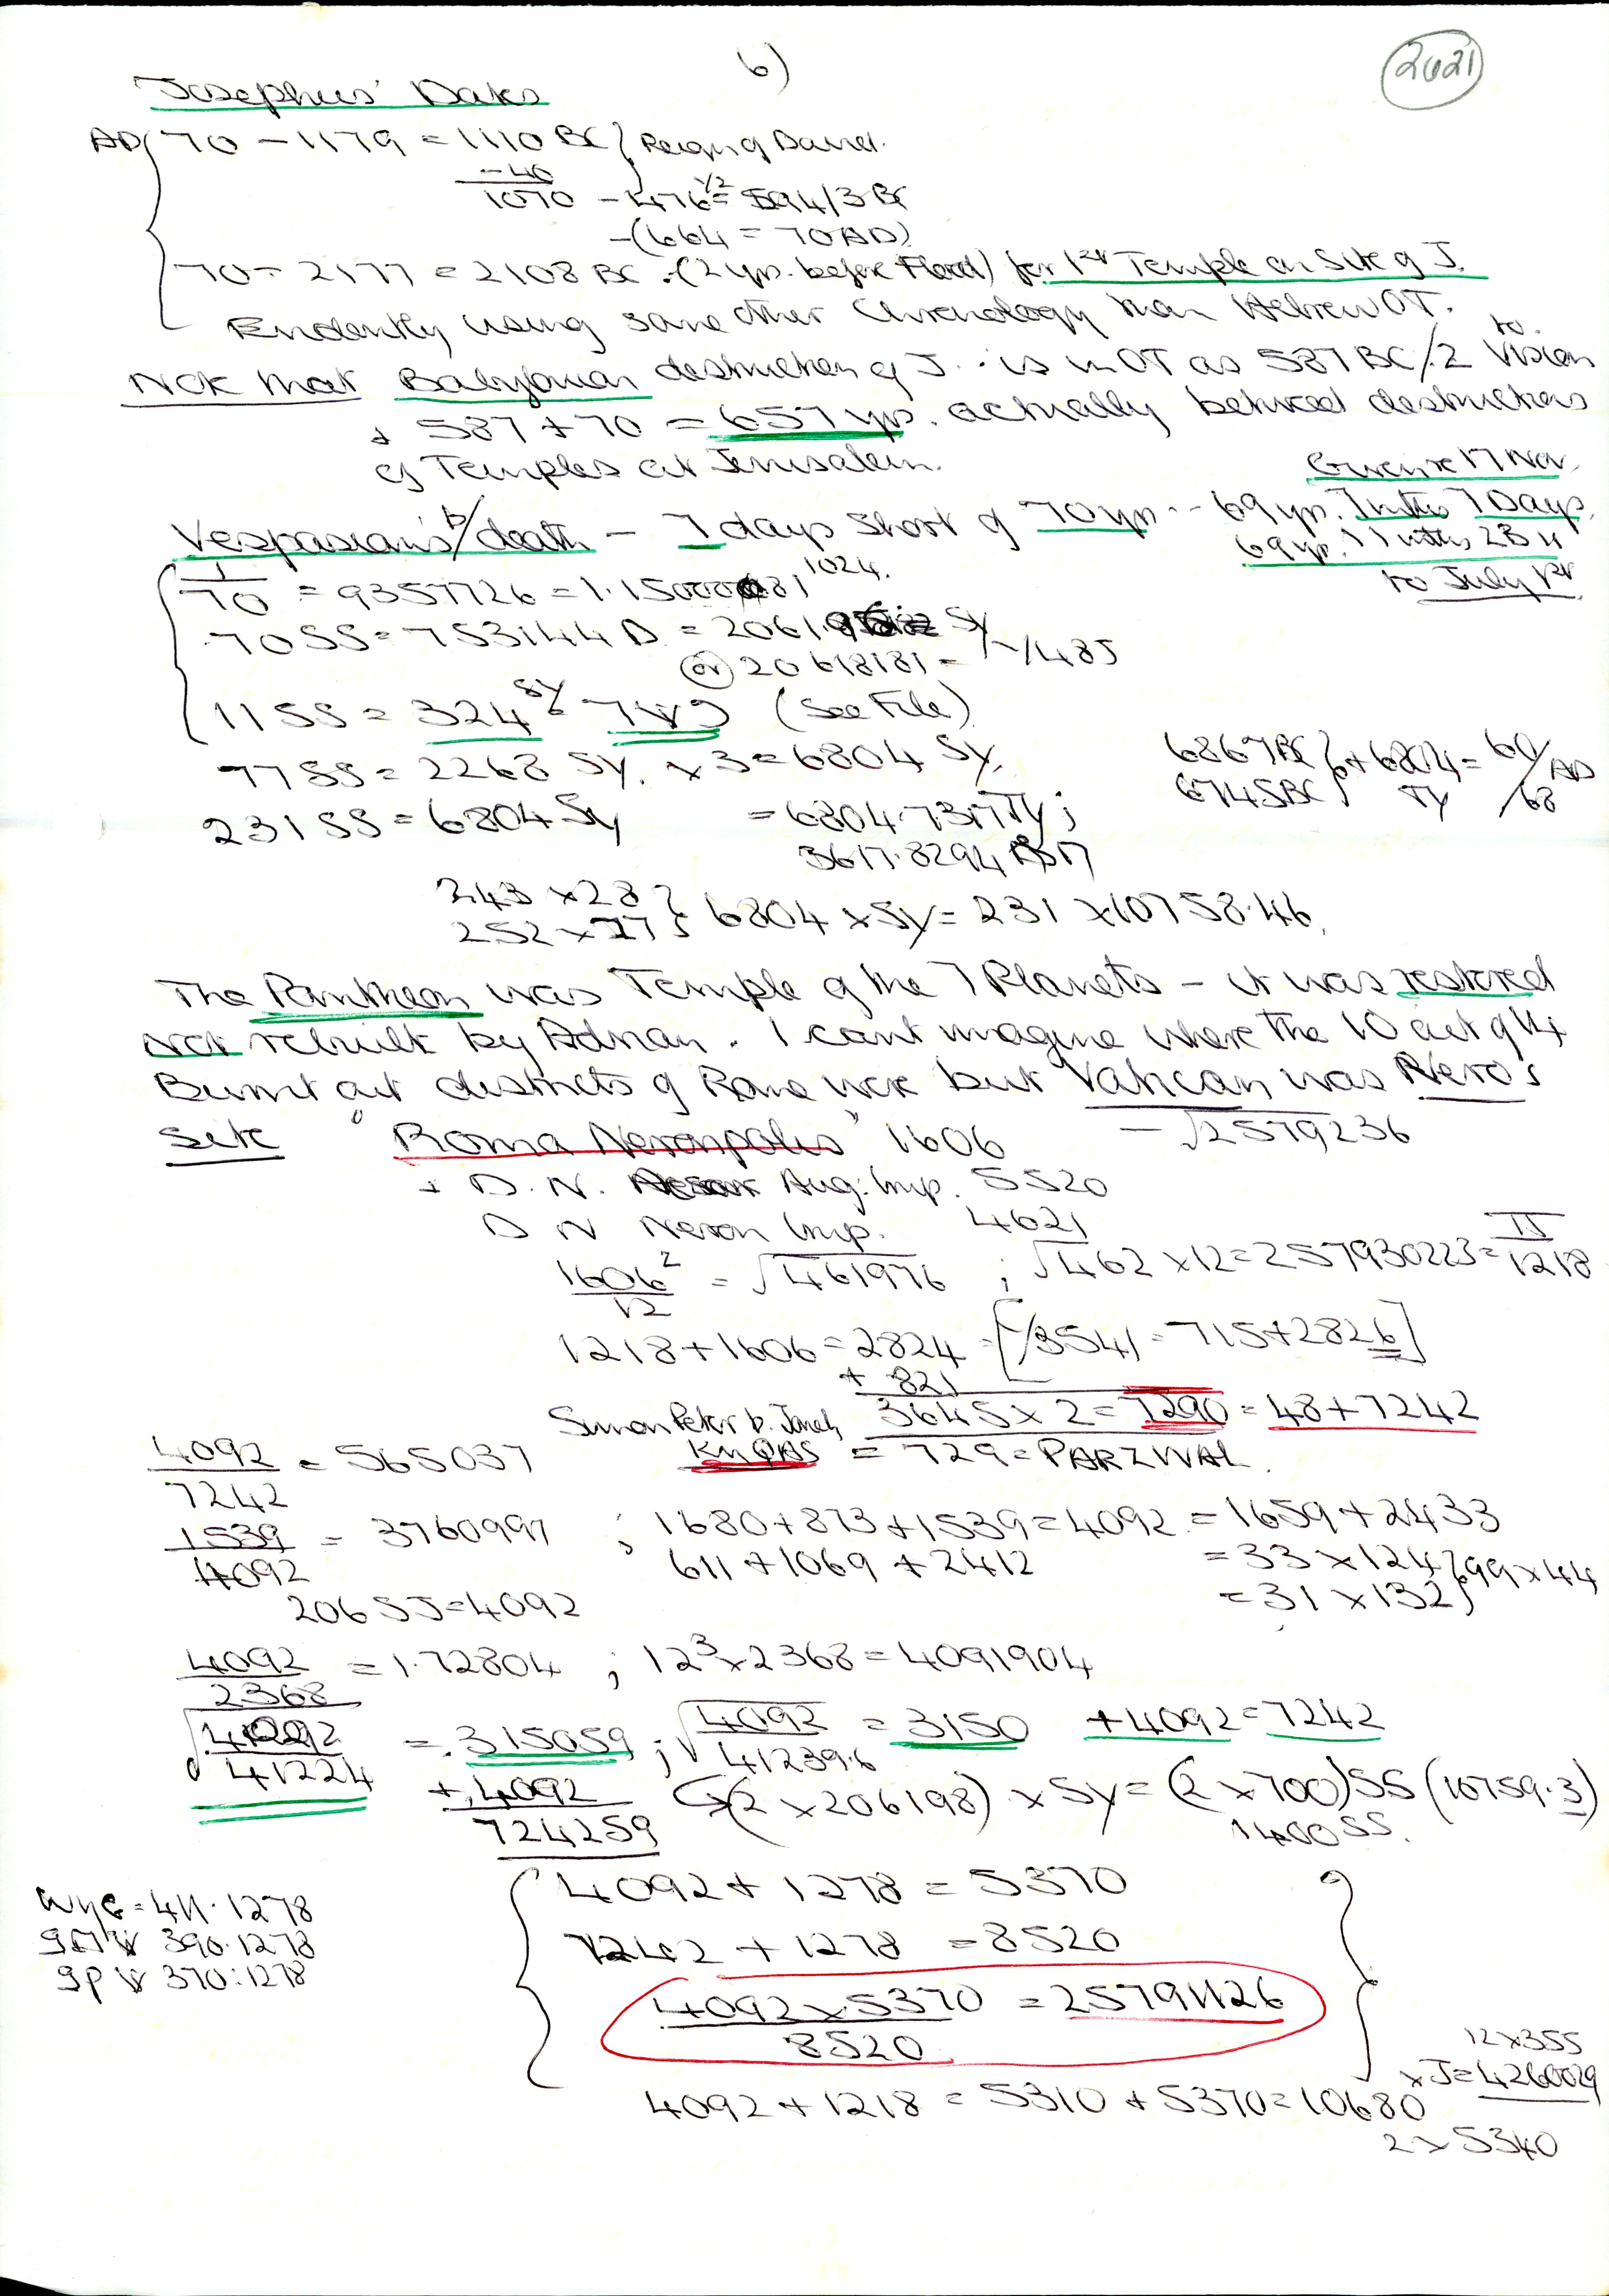 6)
2021
Josephus' Dates
AD 70 - 1179 = 1110 BC } Reign of David.
- 40
1070 - 476 1/2 = 594/3 BC
- (664 = 70 AD)
70 - 2177 = 2108 BC. (2 yrs. before Flood) for 1st Temple on Site of J.
Evidently using some other Chronology than Hebrew OT.
Note that Babylonian destruction of J. is in OT as 587 BC/.2 to. Vision
+ 587 + 70 = 657 yrs. actually between destructions
of Temples at Jerusalem.
17 Nov.
Vespasian's b/death - 7 days short of 70 yrs - 69 yrs. 7 mths 7 Days
69 yrs. 7 mths 23 "
to July 1st
= 9357726 = 1.15000081 1024.
70 SS = 753144 D = 2061. Sy
(or) 20618181 = /1485
11 SS = 324 Sy (See File)
77 SS = 2268 Sy. x 3 = 6804 Sy.
6867 BC } + 6804 = 60/ AD
6745 BC } TY /68
231 SS = 6804 Sy = 6804.7317 Ty ;
3617.8294
243 x 28 }
252 x 27 } 6804 x Sy = 231 x 10758.46.
The Pantheon was Temple of the 7 Planets - it was restored
not rebuilt by Adrian. I cant imagine where the 10 out of 14
Burnt out districts of Rome were but Vatican was Nero's
site "Roma Neronpolis" 1606 - √2579236
+ D. N. Aug. Imp. 5520
D N Neron Imp. 4621
1606² / 12 = √461976 ; √462 x 12 = 257930223 = /1218
1218 + 1606 = 2824 = [ /3541 = 715 + 2826 ]
+ 821
Simon Peter b. Jonah 3645 x 2 = 7290 = 48 + 7242
KHΦAS = 729 = PARZIVAL.
4092 / 7242 = 565037
1539 / 4092 = 3760997 ; 1680 + 873 + 1539 = 4092 = 1659 + 2433
611 + 1069 + 2412 = 33 x 124 } 99 x 44
= 31 x 132 }
206 SJ = 4092
4092 / 2368 = 1.72804 ; 12³ x 2368 = 4091904
√4092 / 41224 = .315059 ; √4092 / 41239.6 = 3150 + 4092 = 7242
+ .4092
724259
(2 x 206198) x Sy = (2 x 700) SS (10759.3)
1400 SS.
4092 + 1278 = 5370
411.1278
390.1278
7242 + 1278 = 8520
370:1278
4092 x 5370 / 8520 = 25791126
12 x 355
x J = 4260029
4092 + 1218 = 5310 + 5370 = 10680
2 x 5340